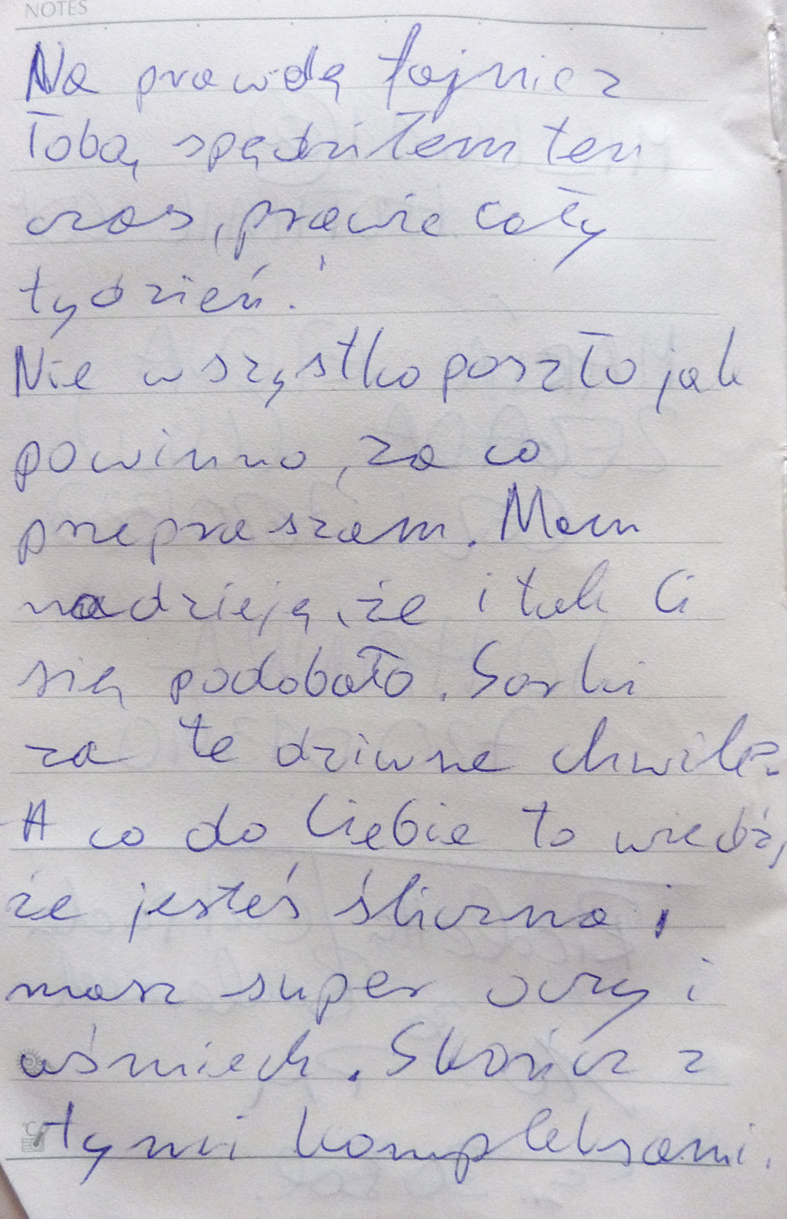 NOTES
Na prawdę fajnie z
Tobą spędziłem ten
czas, prawie cały
tydzień!
Nie wszystko poszło jak
powinno, za co
przepraszam. Mam
nadzieję, że i tak Ci
się podobało. Sorki
za te dziwne chwile.
A co do Ciebie to wiedz,
że jesteś śliczna i
masz super oczy i
uśmiech. Skończ z
tymi kompleksami.